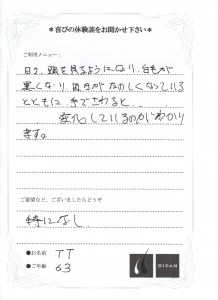 ＊喜びの体験談をお聞かせ下さい＊
ご利用メニュー：
日々、頭を見るようになり、白毛が
黒くなり、毎日がたのしくなっている
とともに、手でさわると...
変化しているのがわかり
ますね。
ご要望など、ございましたらどうぞ
特になし
●お名前 TT
●ご年齢 63
BIDAN